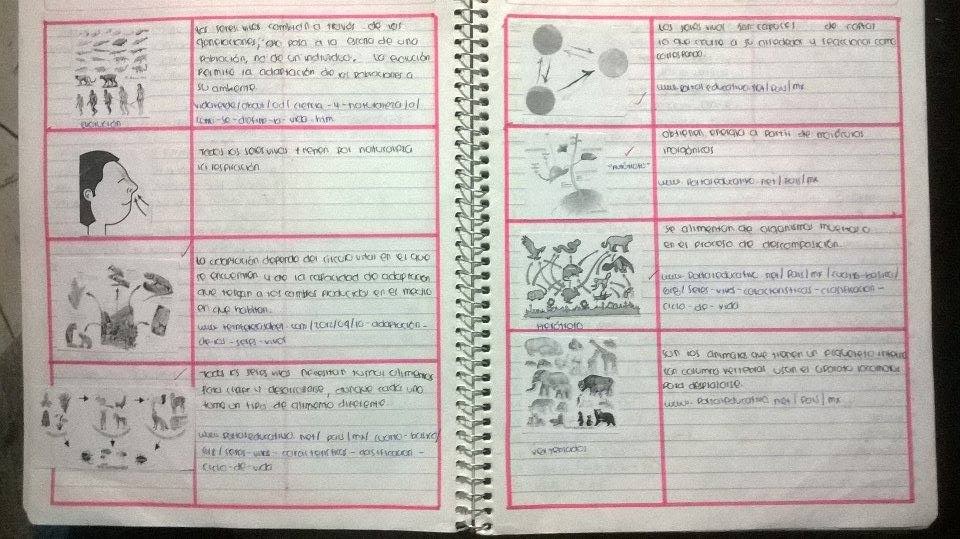 Los seres vivos cambian a través de las
generaciones, eso pasa a la escala de una
población, no de un individuo. La evolución
permite la adaptación de las poblaciones a
su ambiente.
evolución
Todos los seres vivos tienen por naturaleza
la respiración
la adaptación depende del circulo vital en el que
se encuentren y de la capacidad de adaptación
que tengan a los cambios producidos en el medio
en que habitan.
Todos los seres vivos necesitan tomar alimentos
para crecer y desarrollarse, aunque cada uno
toma un tipo de alimento diferente.
www.portaleducativo.net/pais/mx/cuarto-basico/
/seres-vivos-caracteristicas-clasificacion-
ciclo-de-vida
Los seres vivos son capaces de captar
lo que ocurre a su alrededor y reaccionar como
corresponda.
www.portaleducativo.net/pais/mx
obtienen energía a partir de moléculas
inorgánicas
"Autótrofo"
www.portaleducativo.net/pais/mx
se alimentan de organismos muertos o
en el proceso de descomposición.
www.portaleducativo.net/pais/mx/cuarto-basico/
/seres-vivos-caracteristicas-clasificacion-
ciclo-de-vida
Heterótrofo
son los animales que tienen un esqueleto interno
con columna vertebral usan el aparato locomotor
para desplazarse.
www.portaleducativo.net/pais/mx
vertebrados